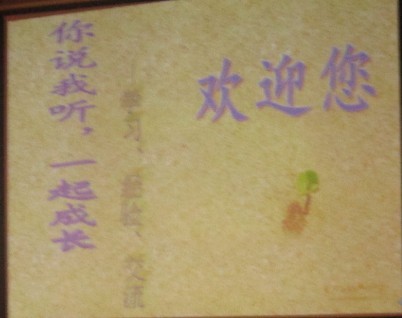 欢迎您
你说我听，一起成长
学习、经验、交流